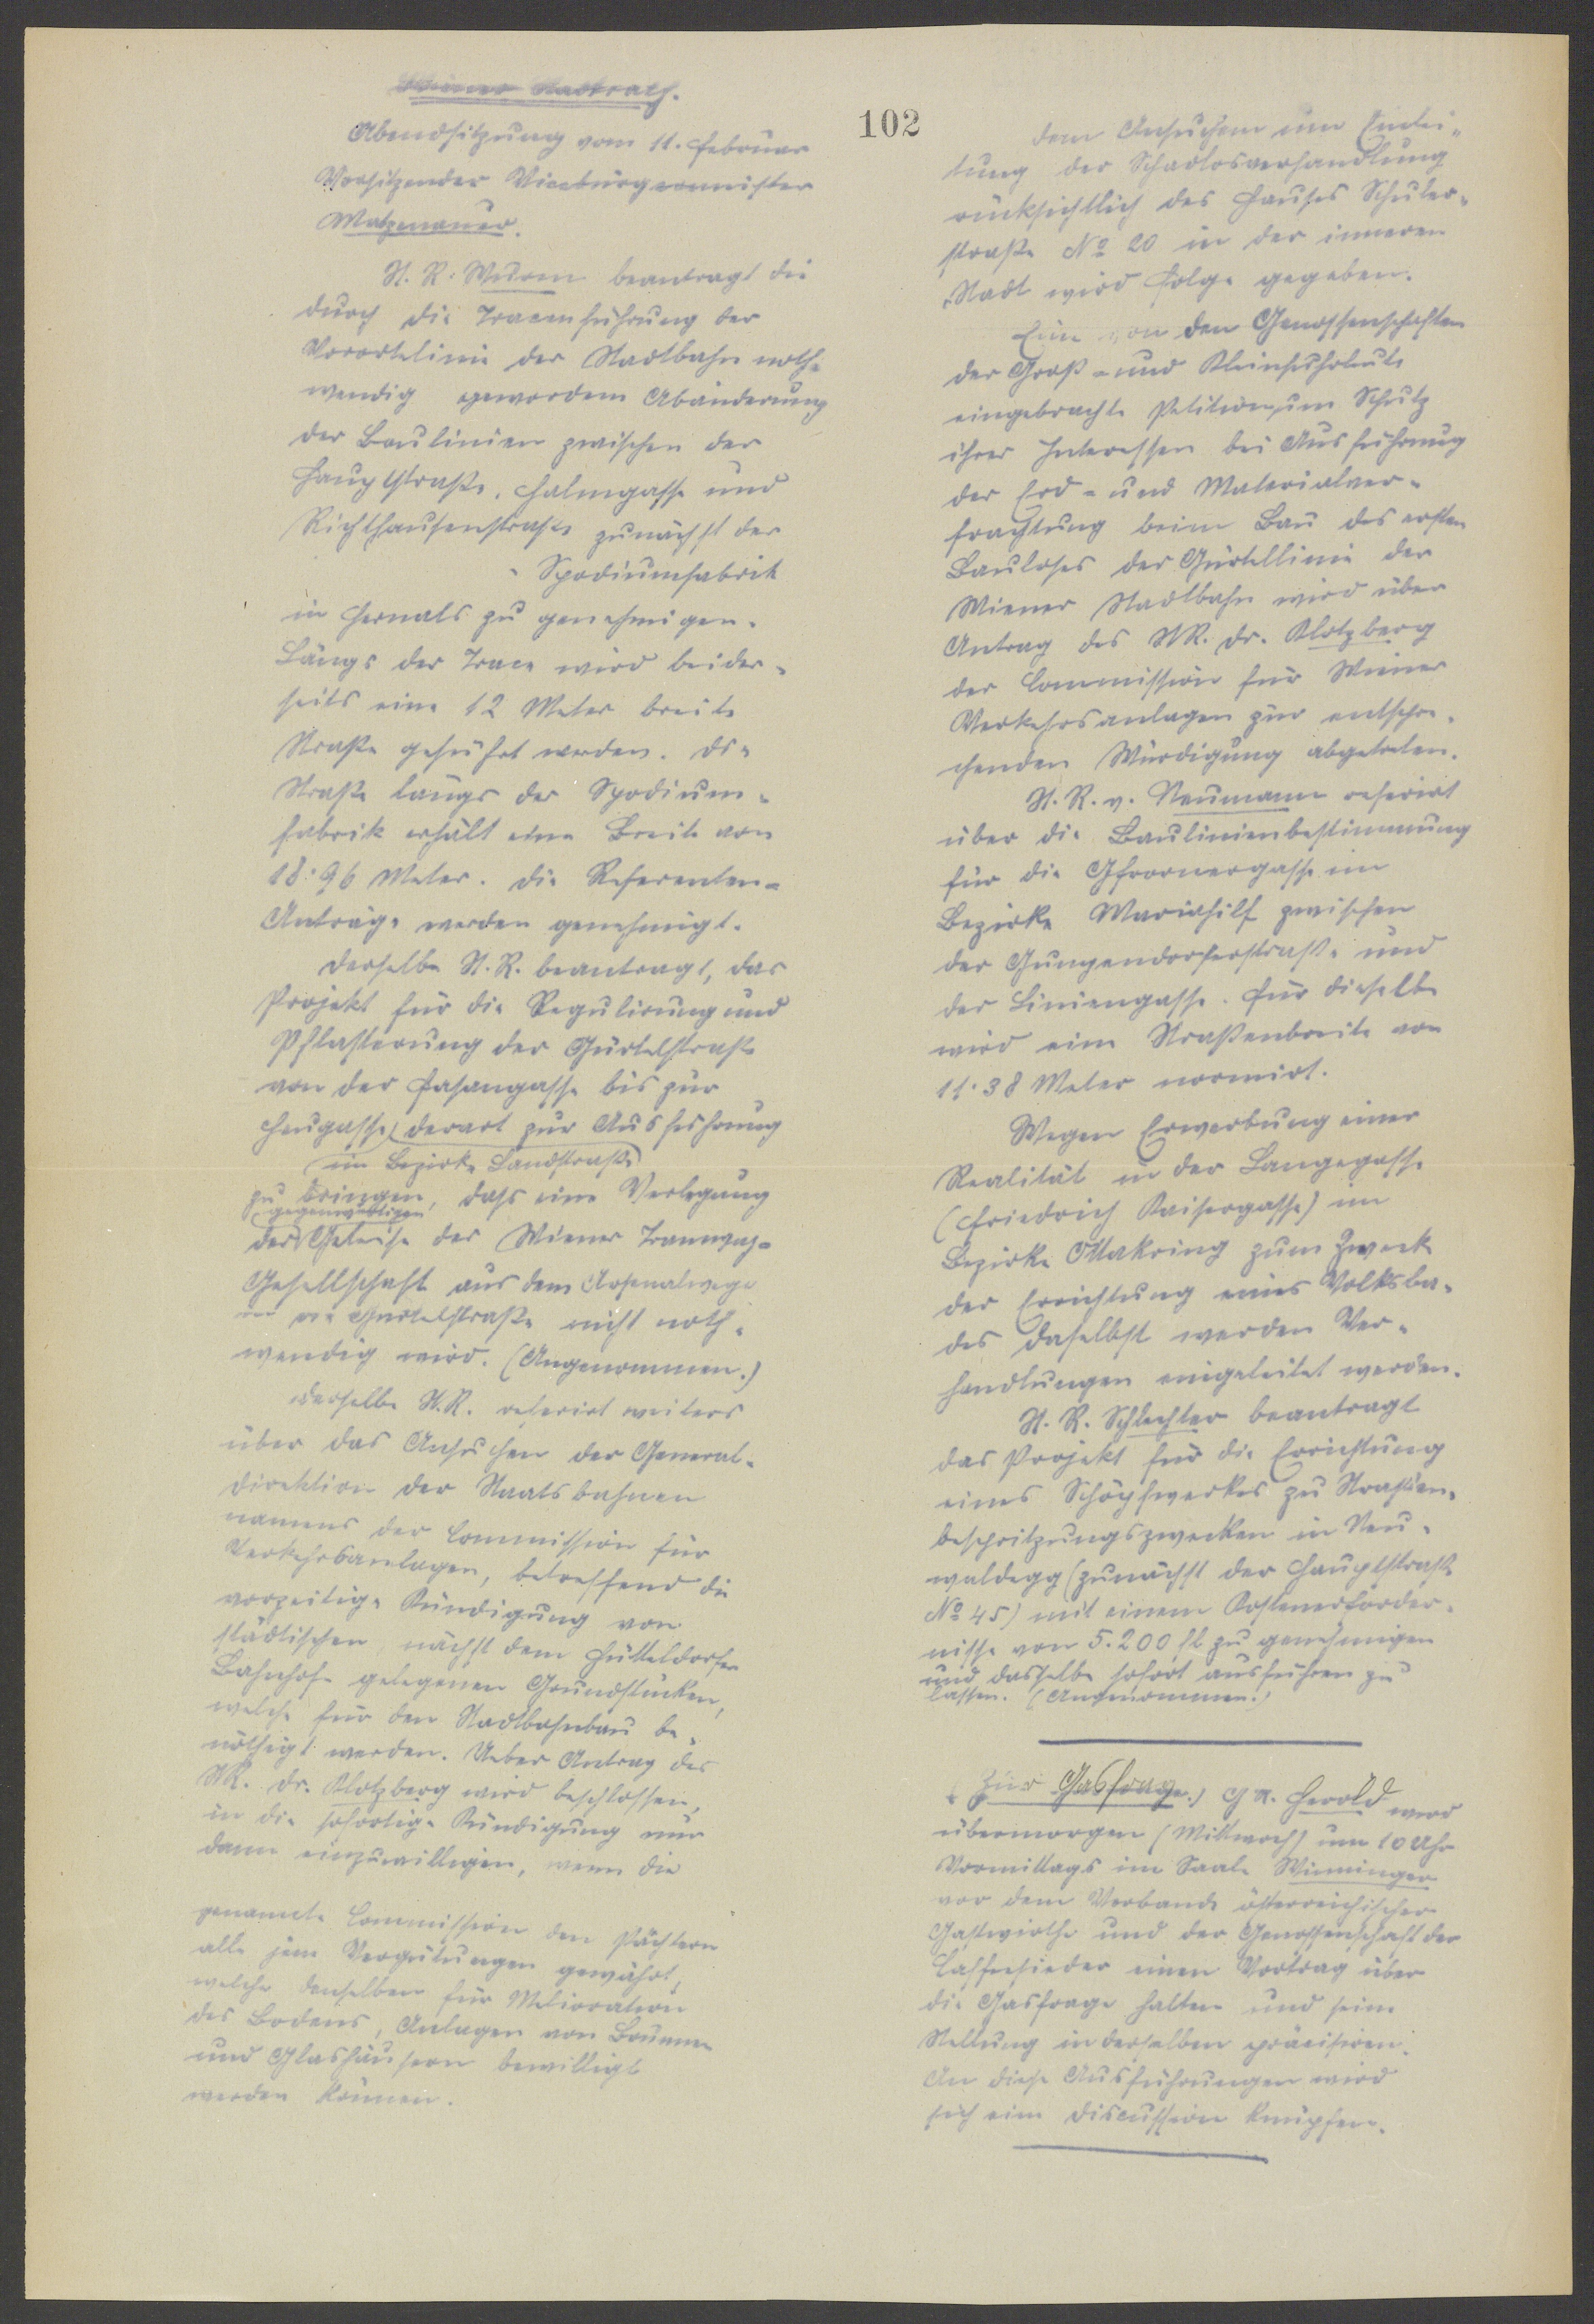 102
Wiener Stadtrath.
Abendsitzung vom 11. Februar
Vorsitzender Vicebürgermeister
Matzenauer.
St. R. Wurm beantragt die
durch die Tracenführung der
Vorortelinie der Stadtbahn noth-
wendig gewordene Abänderung
der Baulinien zwischen der
Hauptstraße, Halmgasse und
Richthausenstraße zunächst der
Spodiumfabrik
in Hernals zu genehmigen.
Längs der Trace wird beider-
seits eine 12 Meter breite
Straße geführt werden. Die
Straße längs der Spodium-
fabrik erhält eine Breite von
18·96 Meter. Die Referenten-
Anträge werden genehmigt.
Derselbe St. R. beantragt, das
Projekt für die Regulirung und
Pflasterung der Gürtelstraße
von der Fasangasse bis zur
Heugasse, derart zur Ausführung
im Bezirke Landstraße
zu bringen, dass eine Verlegung
gegenwärtigen
der Geleise der Wiener Tramway-
Gesellschaft aus dem Arsenalwege
in die Gürtelstraße nicht noth-
wendig wird. (Angenommen.)
Derselbe St. R. referirt weiters
über das Ansuchen der General-
direktion der Staatsbahnen
namens der Commission für
Verkehrsanlagen, betreffend die
vorzeitige Kündigung von
städtischen nächst dem Hütteldorfer
Bahnhofe gelegenen Grundstücken,
welche für den Stadtbahnbau be-
nöthigt werden. Ueber Antrag des
StR. Dr. Klotzberg wird beschlossen,
in die sofortige Kündigung nur
dann einzuwilligen, wenn die
genannte Commission den Pächtern
alle jene Vergütungen gewährt,
welche denselben für Melioration
des Bodens, Anlagen von Brunnen
und Glashäusern bewilligt
werden können.
Dem Ansuchen um Einlei-
tung der Schadlosverhandlung
rücksichtlich des Hauses Schuler-
straße No 20 in der inneren
Stadt wird Folge gegeben.
Eine von den Genossenschaften
der Groß- und Kleinfuhrleute
eingebrachte Petition um Schutz
ihrer Interessen bei Ausführung
der Erd- und Materialver-
frachtung beim Bau des ersten
Bauloses der Gürtellinie der
Wiener Stadtbahn wird über
Antrag des StR. Dr. Klotzberg
der Commission für Wiener
Verkehrsanlagen zur entspre-
chenden Würdigung abgetreten.
St. R. v. Neumann referirt
über die Baulinienbestimmung
für die Gfrornergasse im
Bezirke Mariahilf zwischen
der Gumpendorferstraße und
der Liniengasse. Für dieselbe
wird eine Straßenbreite von
11·38 Meter normirt.
Wegen Erwerbung einer
Realität in der Langegasse
(Friedrich Kaisergasse) im
Bezirke Ottakring zum Zweck
der Errichtung eines Volksba-
des daselbst werden Ver-
handlungen eingeleitet werden.
St. R. Schlechter beantragt
das Projekt für die Errichtung
eines Schöpfwerkes zu Straßen-
bespritzungszwecken in Neu-
waldegg (zunächst der Hauptstraße
No 45) mit einem Kostenerforder-
nisse von 5.200 fl zu genehmigen
und dasselbe sofort ausführen zu
lassen. (Angenommen.)
(Zur Gasfrage.) GR. Herold wird
übermorgen (Mittwoch) um 10 Uhr
Vormittags im Saale Wimminger
vor dem Verbande österreichischer
Gastwirthe und der Genossenschaft der
Caffeesieder einen Vortrag über
die Gasfrage halten und seine
Stellung in derselben präcisiren.
An diese Ausführungen wird
sich eine Discussion knüpfen.